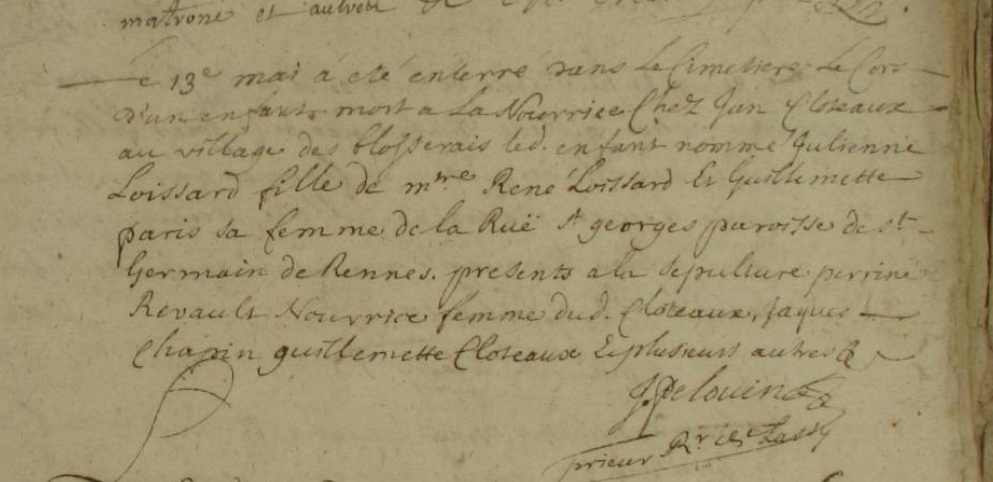 matrone et autres
Le 13e mai a eté enterré dans Le Cimetiere Le Cors
d'un enfant mort a La Nourrice Chez Jan Cloteaux
au village des blosserais led. enfant nommé Julienne
Loissard fille de mtre René Loissard Et Guillemette
paris sa femme de la Ruë st georges paroisse de st
Germain de Rennes. presents a la sepulture perrine
Revault Nourrice femme dud. Cloteaux, Jaques
Chapin guillemette Cloteaux Et plusieurs autres
J. Pelouin
prieur Rr de Lassy